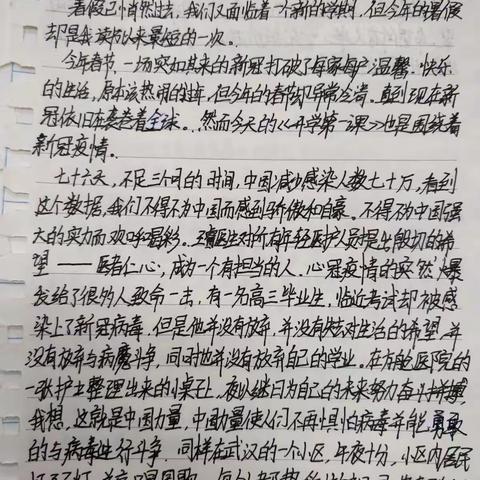 暑假已悄然过去，我们又面临着一个新的学期，但今年的暑假
却是我读书以来最短的一次。
今年春节，一场突如其来的新冠打破了每家每户温馨、快乐
的生活，原本该热闹的过年，但今年的春节却异常冷清。直到现在新
冠依旧在袭卷着全球。然而今天的《开学第一课》也是围绕着
新冠疫情。
七十六天，不足三个月的时间，中国减少感染人数七十万，看到
这个数据，我们不得不为中国而感到骄傲和自豪。不得不为中国强
大的实力而欢呼喝彩。医生对所有年轻医护人员提出殷切的希
望——医者仁心，成为一个有担当的人，心冠疫情的突然爆
发给了很多人致命一击，有一名高三毕业生，临近考试却被感
染上了新冠病毒，但是他并没有放弃，并没有失对生活的希望，并
没有放弃与病魔斗争，同时他并没有放弃自己的学业。在方舱医院的
一张护士整理出来的小桌上，夜以继日为自己的未来努力奋斗拼搏
我想，这就是中国力量，中国力量使人们不再惧怕病毒并能勇敢
的与病毒进行斗争，同样在武汉的一个小区，午夜十分，小区内居民